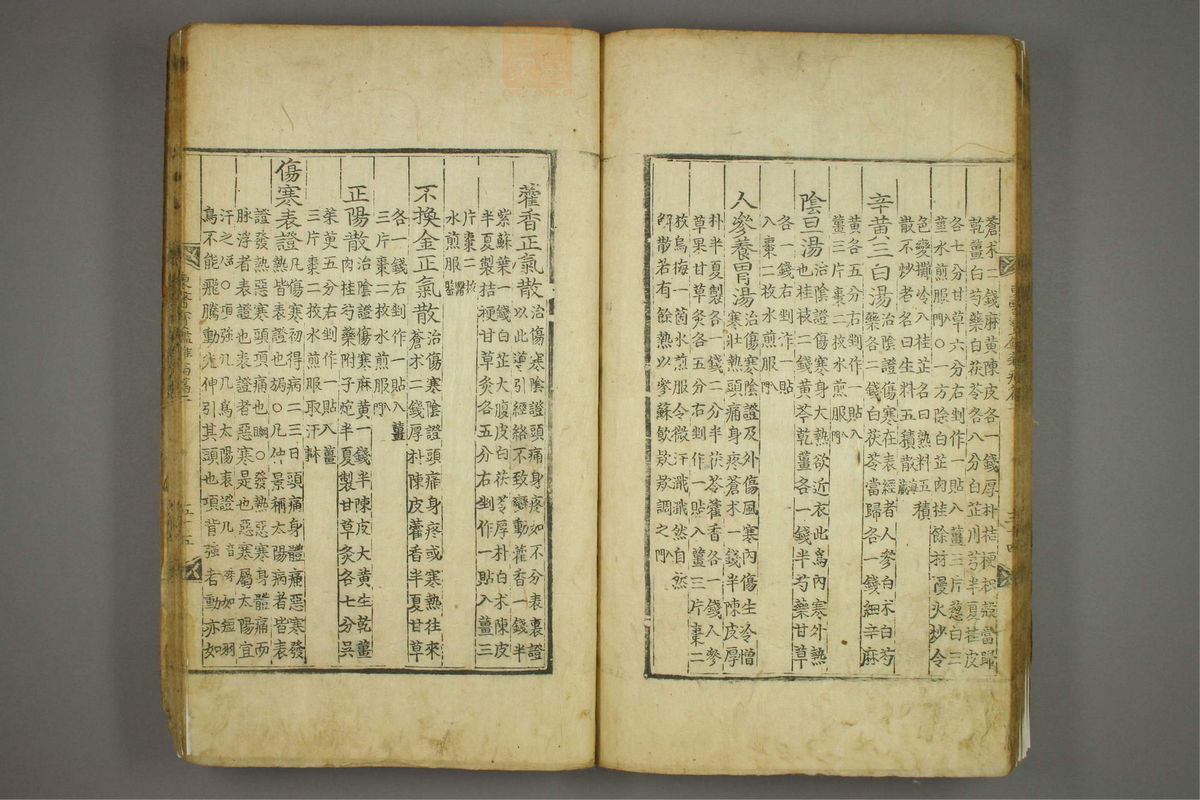 蒼朮二錢麻黃陳皮各一錢厚朴桔梗枳殼當歸
乾薑白芍藥白茯苓各八分白芷川芎半夏桂皮
各七分甘草六分右剉作一貼入薑三片葱白三
莖水煎服入門○一方除白芷肉桂餘材慢火炒令
色變攤冷入桂芷名曰熟料五積
散不炒者名曰生料五積散海藏
辛黃三白湯
治陰證傷寒在表經者人參白朮白芍
藥各二錢白茯苓當歸各一錢細辛麻
黃各五分右剉作一貼入
薑三片棗二枚水煎服入門
陰旦湯
治陰證傷寒身大熱欲近衣此爲內寒外熱
也桂枝二錢黃芩乾薑各一錢半芍藥甘草
各一錢右剉作一貼
入棗二枚水煎服入門
人參養胃湯
治傷寒陰證及外傷風寒內傷生冷憎
寒壯熱頭痛身疼蒼朮一錢半陳皮厚
朴半夏製各一錢二分半茯苓藿香各一錢人參
草果甘草灸各五分右剉作一貼入薑三片棗二
枚烏梅一箇水煎服令微汗濈濈然自然
解散若有餘熱以參蘇飮款款調之入門
藿香正氣散
治傷寒陰證頭痛身疼如不分表裏證
以此導引經絡不致變動藿香一錢半
紫蘇葉一錢白芷大腹皮白茯苓厚朴白朮陳皮
半夏製桔梗甘草灸各五分右剉作一貼入薑三
片棗二枚
水煎服醫鑑
不換金正氣散
治傷寒陰證頭痛身疼或寒熱往來
蒼朮二錢厚朴陳皮藿香半夏甘草
各一錢右剉作一貼入薑
三片棗二枚水煎服入門
正陽散
治陰證傷寒麻黃一錢半陳皮大黃生乾薑
肉桂芍藥附子炮半夏製甘草灸各七分吳
茱萸五分右剉作一貼入薑
三片棗二枚水煎服取汗
傷寒表證
凡傷寒初得病二三日頭痛身體痛惡寒發
熱皆表證也○凡仲景稱太陽病者皆表
證發熱惡寒頭項痛也○發熱惡寒身體痛而
脉浮者表證也表證者惡寒是也惡寒屬太陽宜
汗之○項強几几爲太陽表證几音殊如短羽
鳥不能飛騰動先伸引其頭也項背強者動亦如